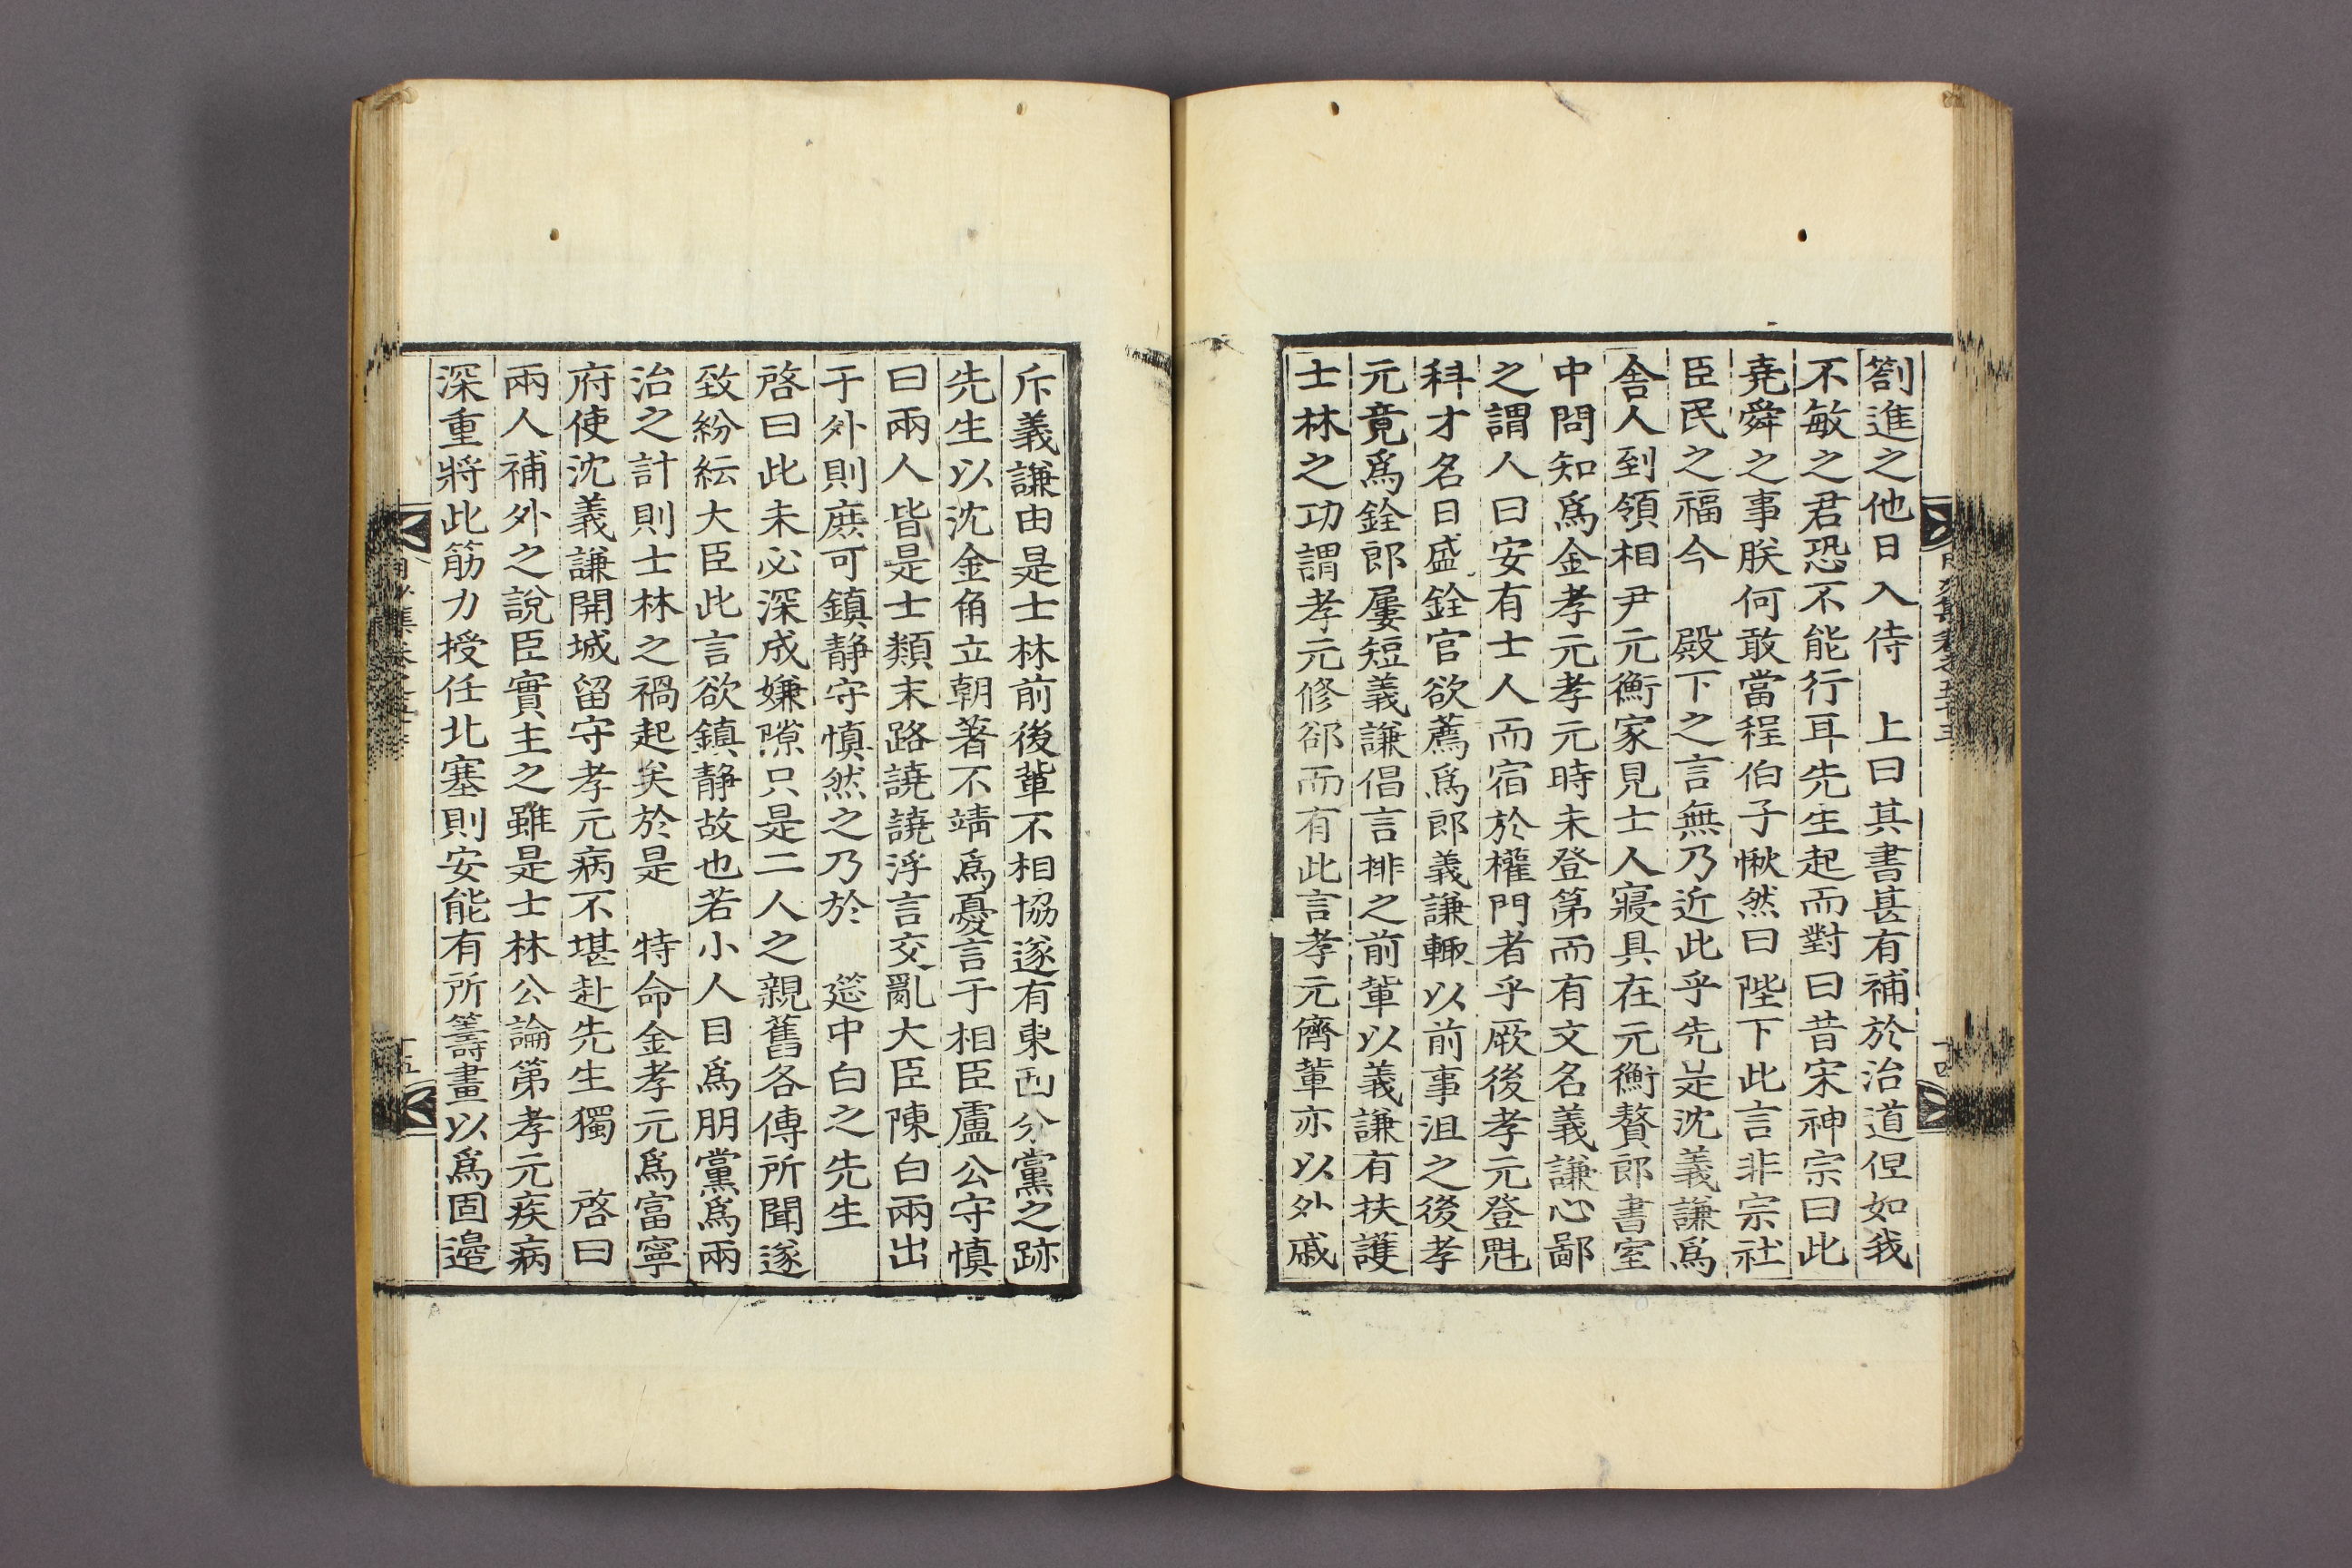 劄進之他日入侍　上曰其書甚有補於治道但如我
不敏之君恐不能行耳先生起而對曰昔宋神宗曰此
堯舜之事朕何敢當程伯子愀然曰陛下此言非宗社
臣民之福今　殿下之言無乃近此乎先是沈義謙爲
舍人到領相尹元衡家見士人寢具在元衡贅郎書室
中問知爲金孝元孝元時未登第而有文名義謙心鄙
之謂人曰安有士人而宿於權門者乎厥後孝元登魁
科才名日盛銓官欲薦爲郎義謙輒以前事沮之後孝
元竟爲銓郎屢短義謙倡言排之前輩以義謙有扶護
士林之功謂孝元修郤而有此言孝元儕輩亦以外戚
斥義謙由是士林前後輩不相協遂有東西分黨之跡
先生以沈金角立朝著不靖爲憂言于相臣盧公守愼
曰兩人皆是士類末路譊譊浮言交亂大臣陳白兩出
于外則庶可鎮静守愼然之乃於　筵中白之先生
啓曰此未必深成嫌隙只是二人之親舊各傳所聞遂
致紛紜大臣此言欲鎮静故也若小人目爲朋黨爲兩
治之計則士林之禍起矣於是　特命金孝元爲富寧
府使沈義謙開城留守孝元病不堪赴先生獨　啓曰
兩人補外之說臣實主之雖是士林公論第孝元疾病
深重將此筋力授任北塞則安能有所籌畫以爲固邉